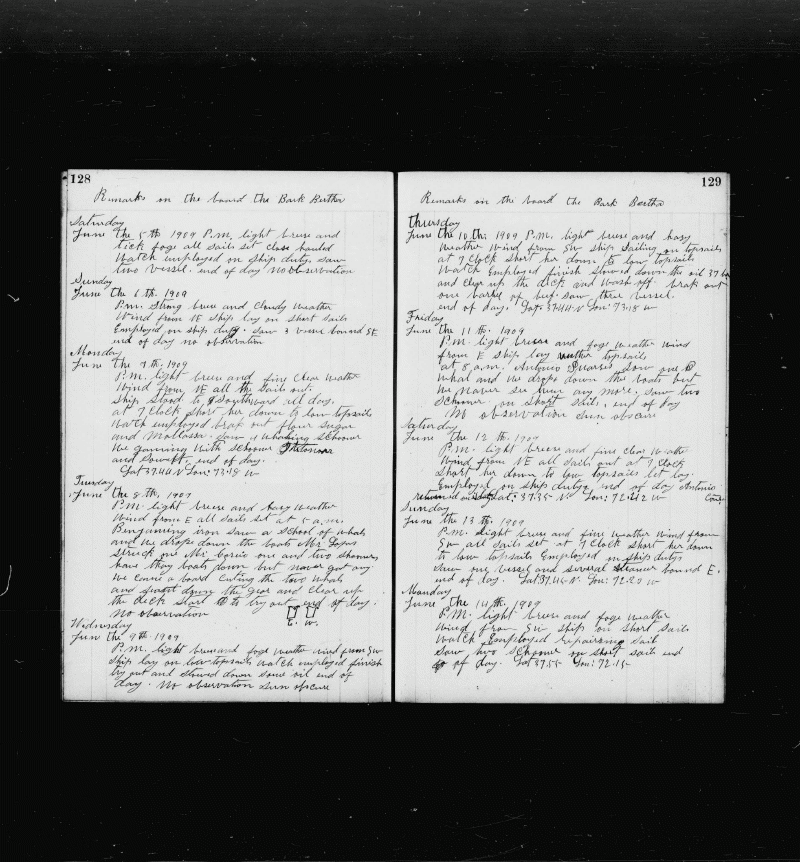 128
Remarks on the board the Bark Bertha
Saturday
June the 5th 1909 P.M. light breese and
tick foge all sails set close hauled
Watch employed on ship duty saw
two vessel. end of day No observation
Sunday
June the 6th. 1909
P.m. Strong breese and Cloudy Weather
Wind from NE ship lay on short sails
Employed on ship duty. Saw 3 bound SE
end of day no observation
Monday
June the 7th. 1909
P.M. light breese and fine Clear Weather
Wind from NE all the sails out.
Ship Stood to Southward all day.
at 7 Clock short her down to low topsails
Watch employed brap out flour sugar
and Molasses. Saw 4 Whaling Schooner
We gamming With Schooner
and end of day.
Lat 37.44 N Lon: 73.18 W
Tuesday
June the 8th, 1909
P.M. light breese and hasy Weather
Wind from E all Sails set at 5 a.m.
Benjaming iron saw a School of whals
and we drope down the boats Mr Lopes
struck one Mr one and two
have thay boats down but never got any
We came a board Cuting the two Whals
and down the gear and Clear up
the deck start to try out end of day.
No observation
L. W.
Wednesday
June the 9th 1909
P.M. light breese and foge weather wind from SW
Ship lay on low topsails Watch employed finish
try out and stowed down some oil end of
day. No observation sun obscure
129
Remarks on the board the Bark Bertha
Thursday
June the 10th: 1909 P.M. light breese and hasy
Weather Wind from SW Ship Sailing on topsails
at 7 Clock Short her down to low topsails
Watch Employed finish stowed down the oil 37
and Clear up the deck and Wash off. brak out
one barrel of beef. saw three vessel.
end of day. Lat: 37.44 N Lon: 73.18 W
Friday
June the 11th. 1909
P.M. light breese and foge Weather Wind
from E ship lay under topsails
at 8 a.m. Antonio saw one
whal and we drope down the boats but
we never see him any more, saw two
Schooner on short sails, end of day
No observation sun obscure
Saturday
June the 12th. 1909
P.M. light breese and fine Clear Weather
Wind from NE all sails out at 7 Clock
Short her down to low topsails let lay
Employed on ship dutys end of day Antonio
returned on duty Lat: 37.35 N Lon: 72.42 W
Sunday
June the 13th. 1909
P.M. light breese and fine Weather Wind from
SW all sails set at 7 Clock Short her down
to low topsails Employed on ship dutys
Saw one vessel and several steamer bound E.
end of day. Lat 37.46 N. Lon: 72.20 W
Monday
June the 14th. 1909
P.M. light breese and foge Weather
Wind from SW ship on short sails
Watch Employed repairing sail
Saw two Schooner on short sails end
of day. Lat 37.55 Lon: 72.15